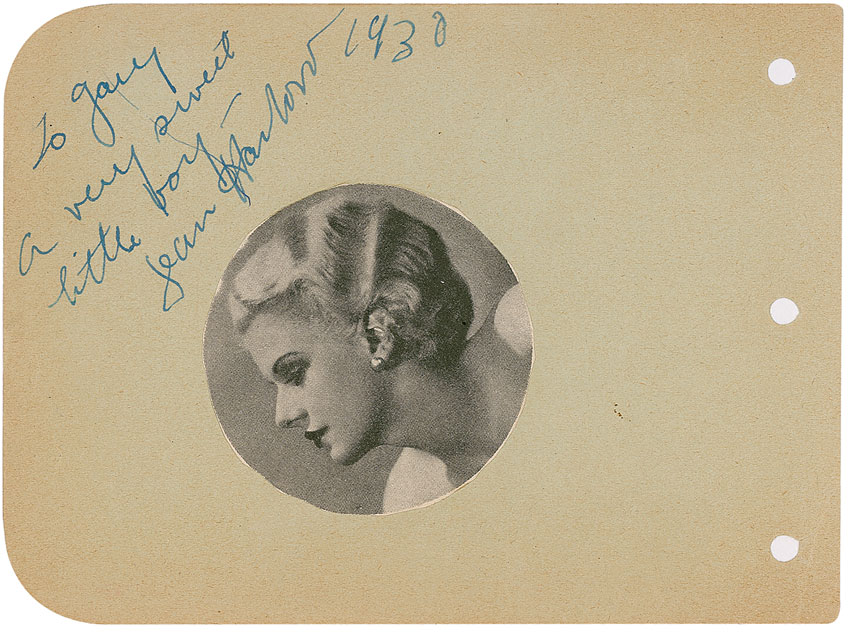 to gary
a very sweet
little boy
Jean Harlow 1930